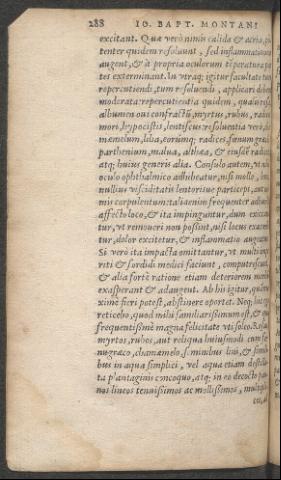 288 IO. BAPT. MONTANI
excitant. Quæ verò nimis calida & acria,
tenter quidem resoluunt, sed inflammationem
augent, & à propria oculorum tēperatura
tes exterminant. In vtraq; igitur facultate tum
repercutiendi, tum resoluendi, applicari debent
moderata: repercutientia quidem, qualia
albumen oui confractũ, myrtus, rubus,
more, hypocistis, lentiscus: resoluentia verò,
mæmelum, lilia, eorumq; radices, fœnum græ
parthenium, malua, althæa, & eiusdē radices
atq; huius generis alia. Consulo autem, vt
oculo ophthalmico adhibeatur, nisi molle,
nullius visciditatis lentorisue particeps,
mis corpulentum: talia enim frequenter adhærēt
affecto loco, & ita impinguntur, dum exicca
tur, vt remoueri non possint, nisi locus exacer
tur, dolor excitetur, & inflammatio augeatur.
Si verò ita impacta emittantur, vt multi
riti & sordidi medici faciunt, computrescunt
& alia fortè ratione etiam deteriorem
exasperant & adaugent. Ab his igitur,
ximè fieri potest, abstinere oportet. Neq;
reticebo, quod mihi familiarissimum est, &
frequentissimè magna felicitate vti soleo.
myrtos, rubos, aut reliqua huiusmodi cum
nugræco, chamæmelo, s. minibus lini, &
bus in aqua simplici, vel aqua etiam distilla
ta plantaginis concoquo, atq; in eo decocto pan
nos lineos tenuissimos ac mollissimos,